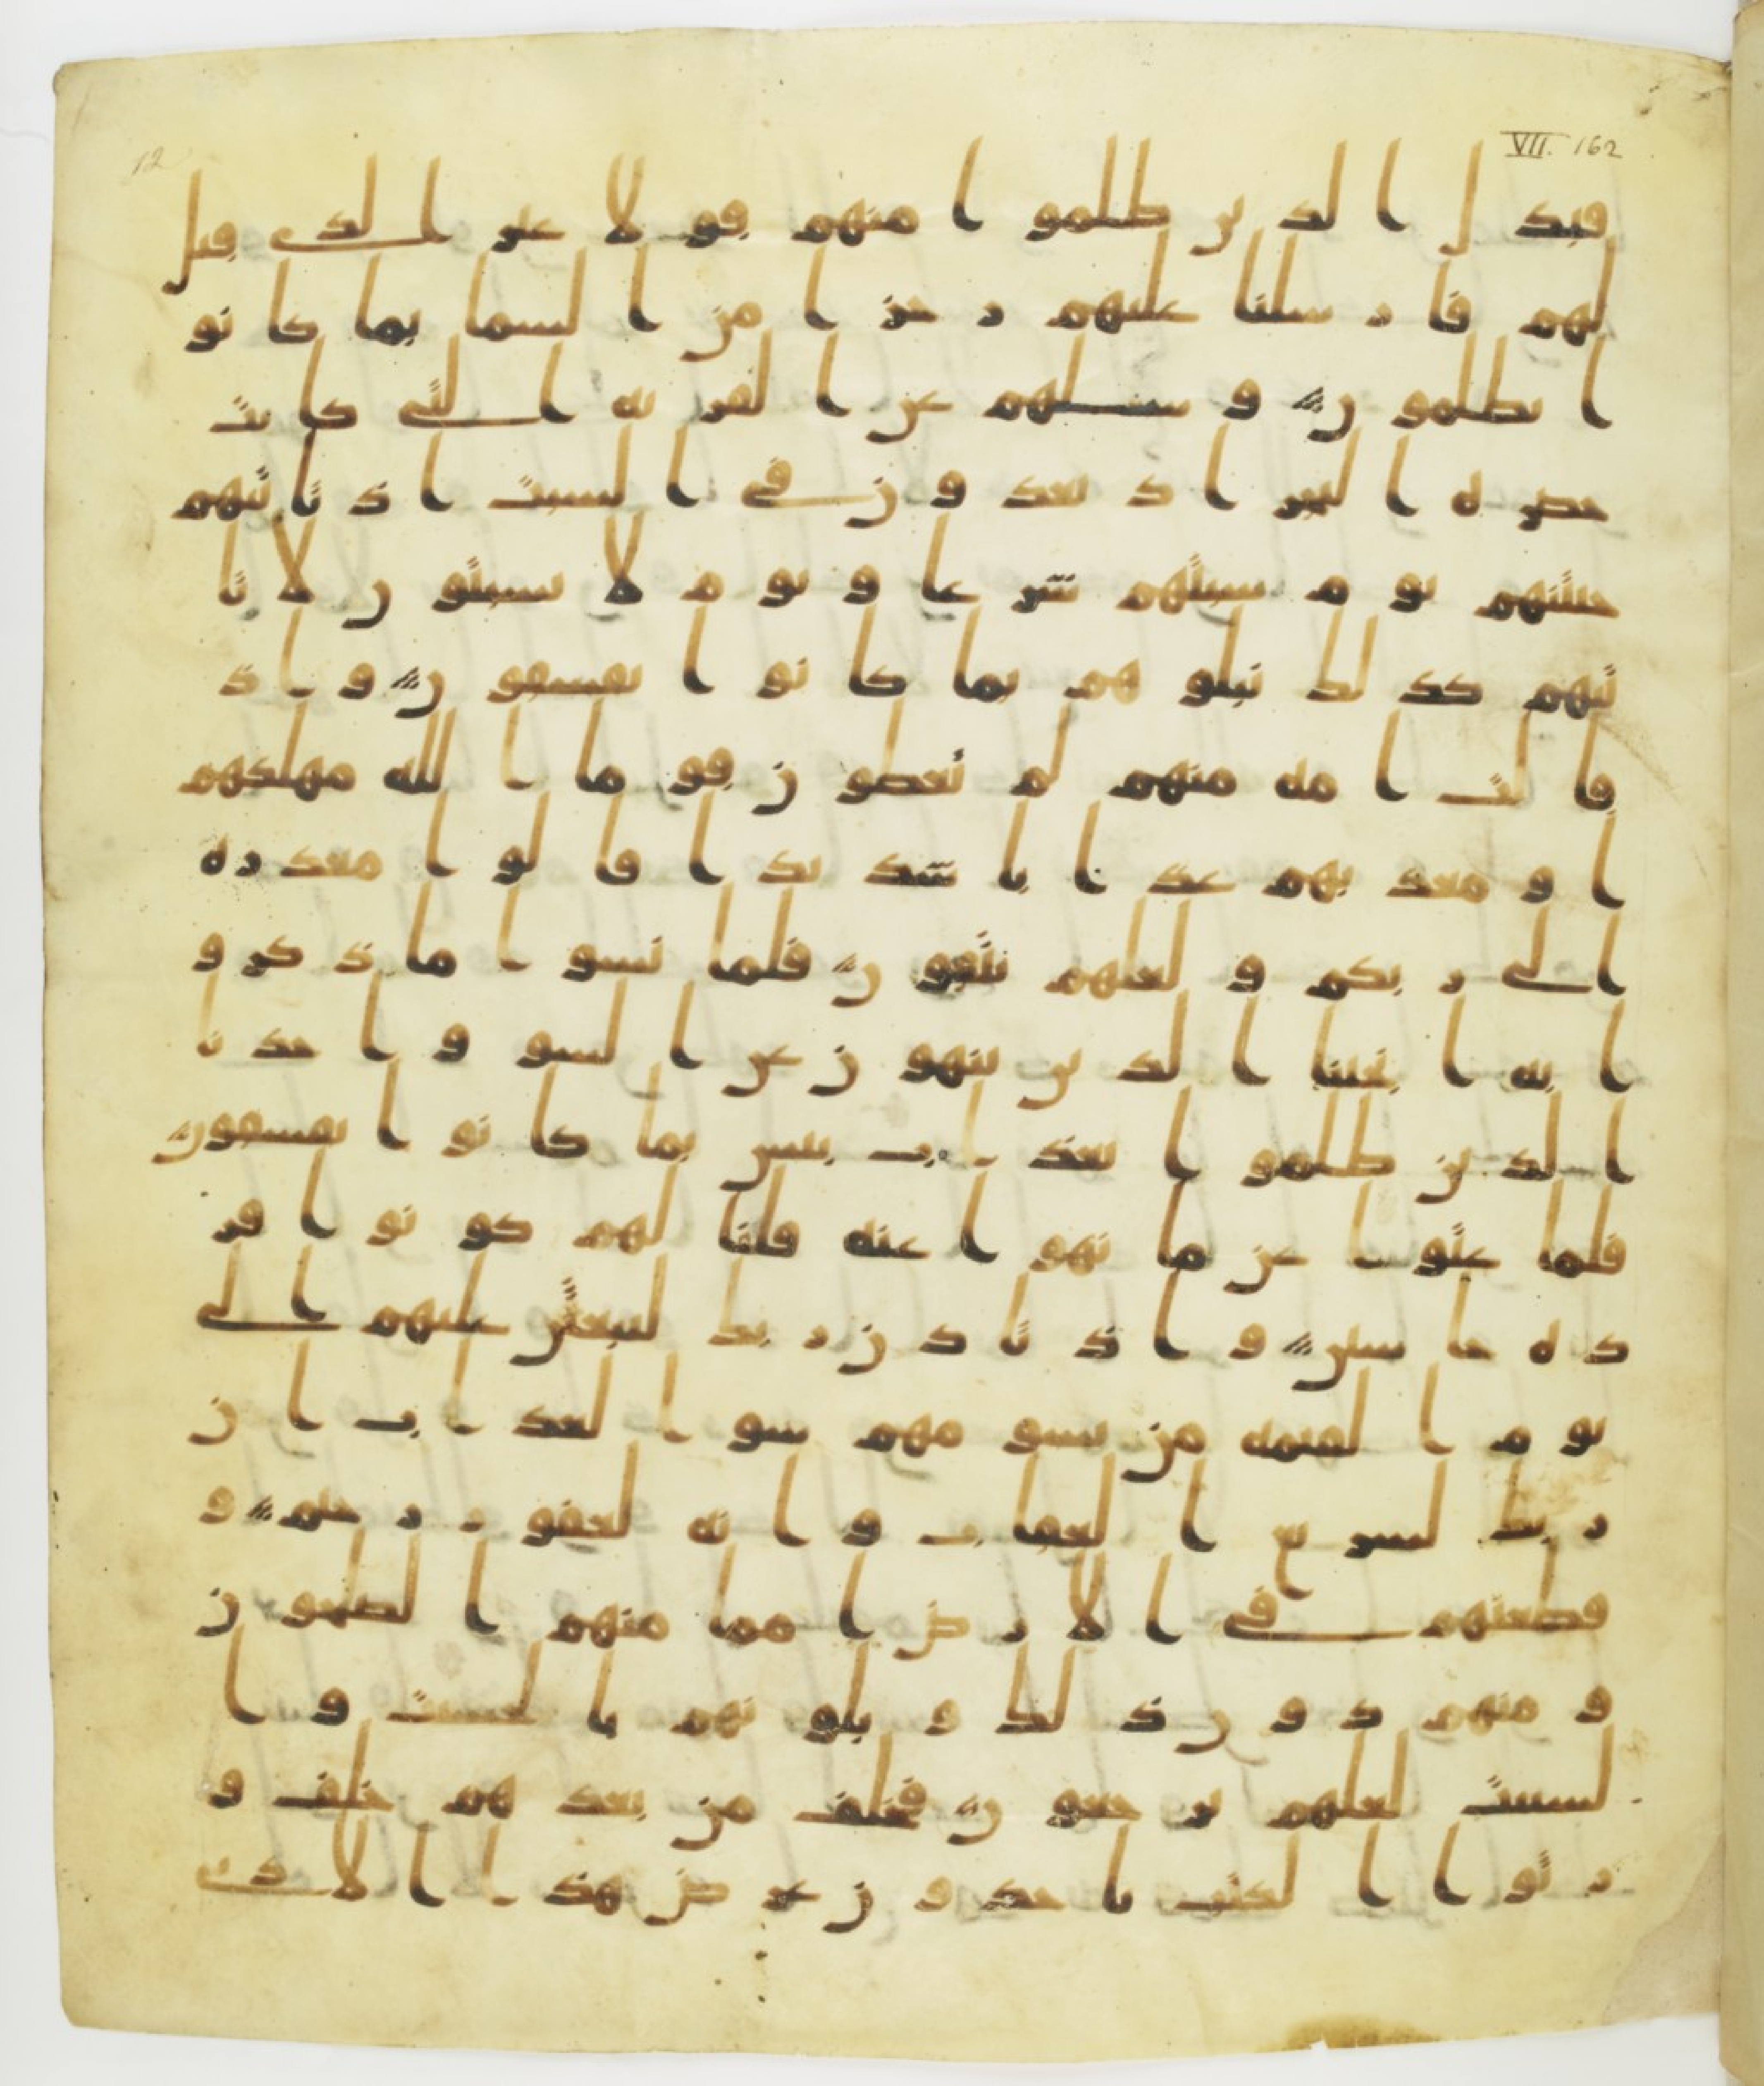 VII. 162
12
فبدل الذين ظلموا منهم قولا غير الذي قيل
لهم فارسلنا عليهم رجزا من السما بما كانو
ا يظلمون وسلهم عن القريه التي كانت
حضره البحر اذ يعدون في السبت اذ تاتيهم
حيتنهم يوم سبتهم شرعا ويوم لا يسبتون لا تا
تيهم كذلك نبلوهم بما كانوا يفسقون واذ
قالت امه منهم لم تعظون قوما الله مهلكهم
او معذبهم عذابا شديدا قالوا معذره
الى ربكم ولعلهم يتقون فلما نسوا ما ذكرو
ا به انجينا الذين ينهون عن السو واخذنا
الذين ظلموا بعذاب بيس بما كانوا يفسقون
فلما عتوا عن ما نهوا عنه قلنا لهم كونوا قر
ده خاسين واذ تاذن ربك ليبعثن عليهم الى
يوم القيمه من يسومهم سو العذاب ان
ربك لسريع العقاب وانه لغفور رحيم و
قطعنهم في الارض امما منهم الصلحون
ومنهم دون ذلك وبلونهم بالحسنت وا
لسيت لعلهم يرجعون فخلف من بعدهم خلف و
رثوا الكتب ياخذون عرض هذا الادنى